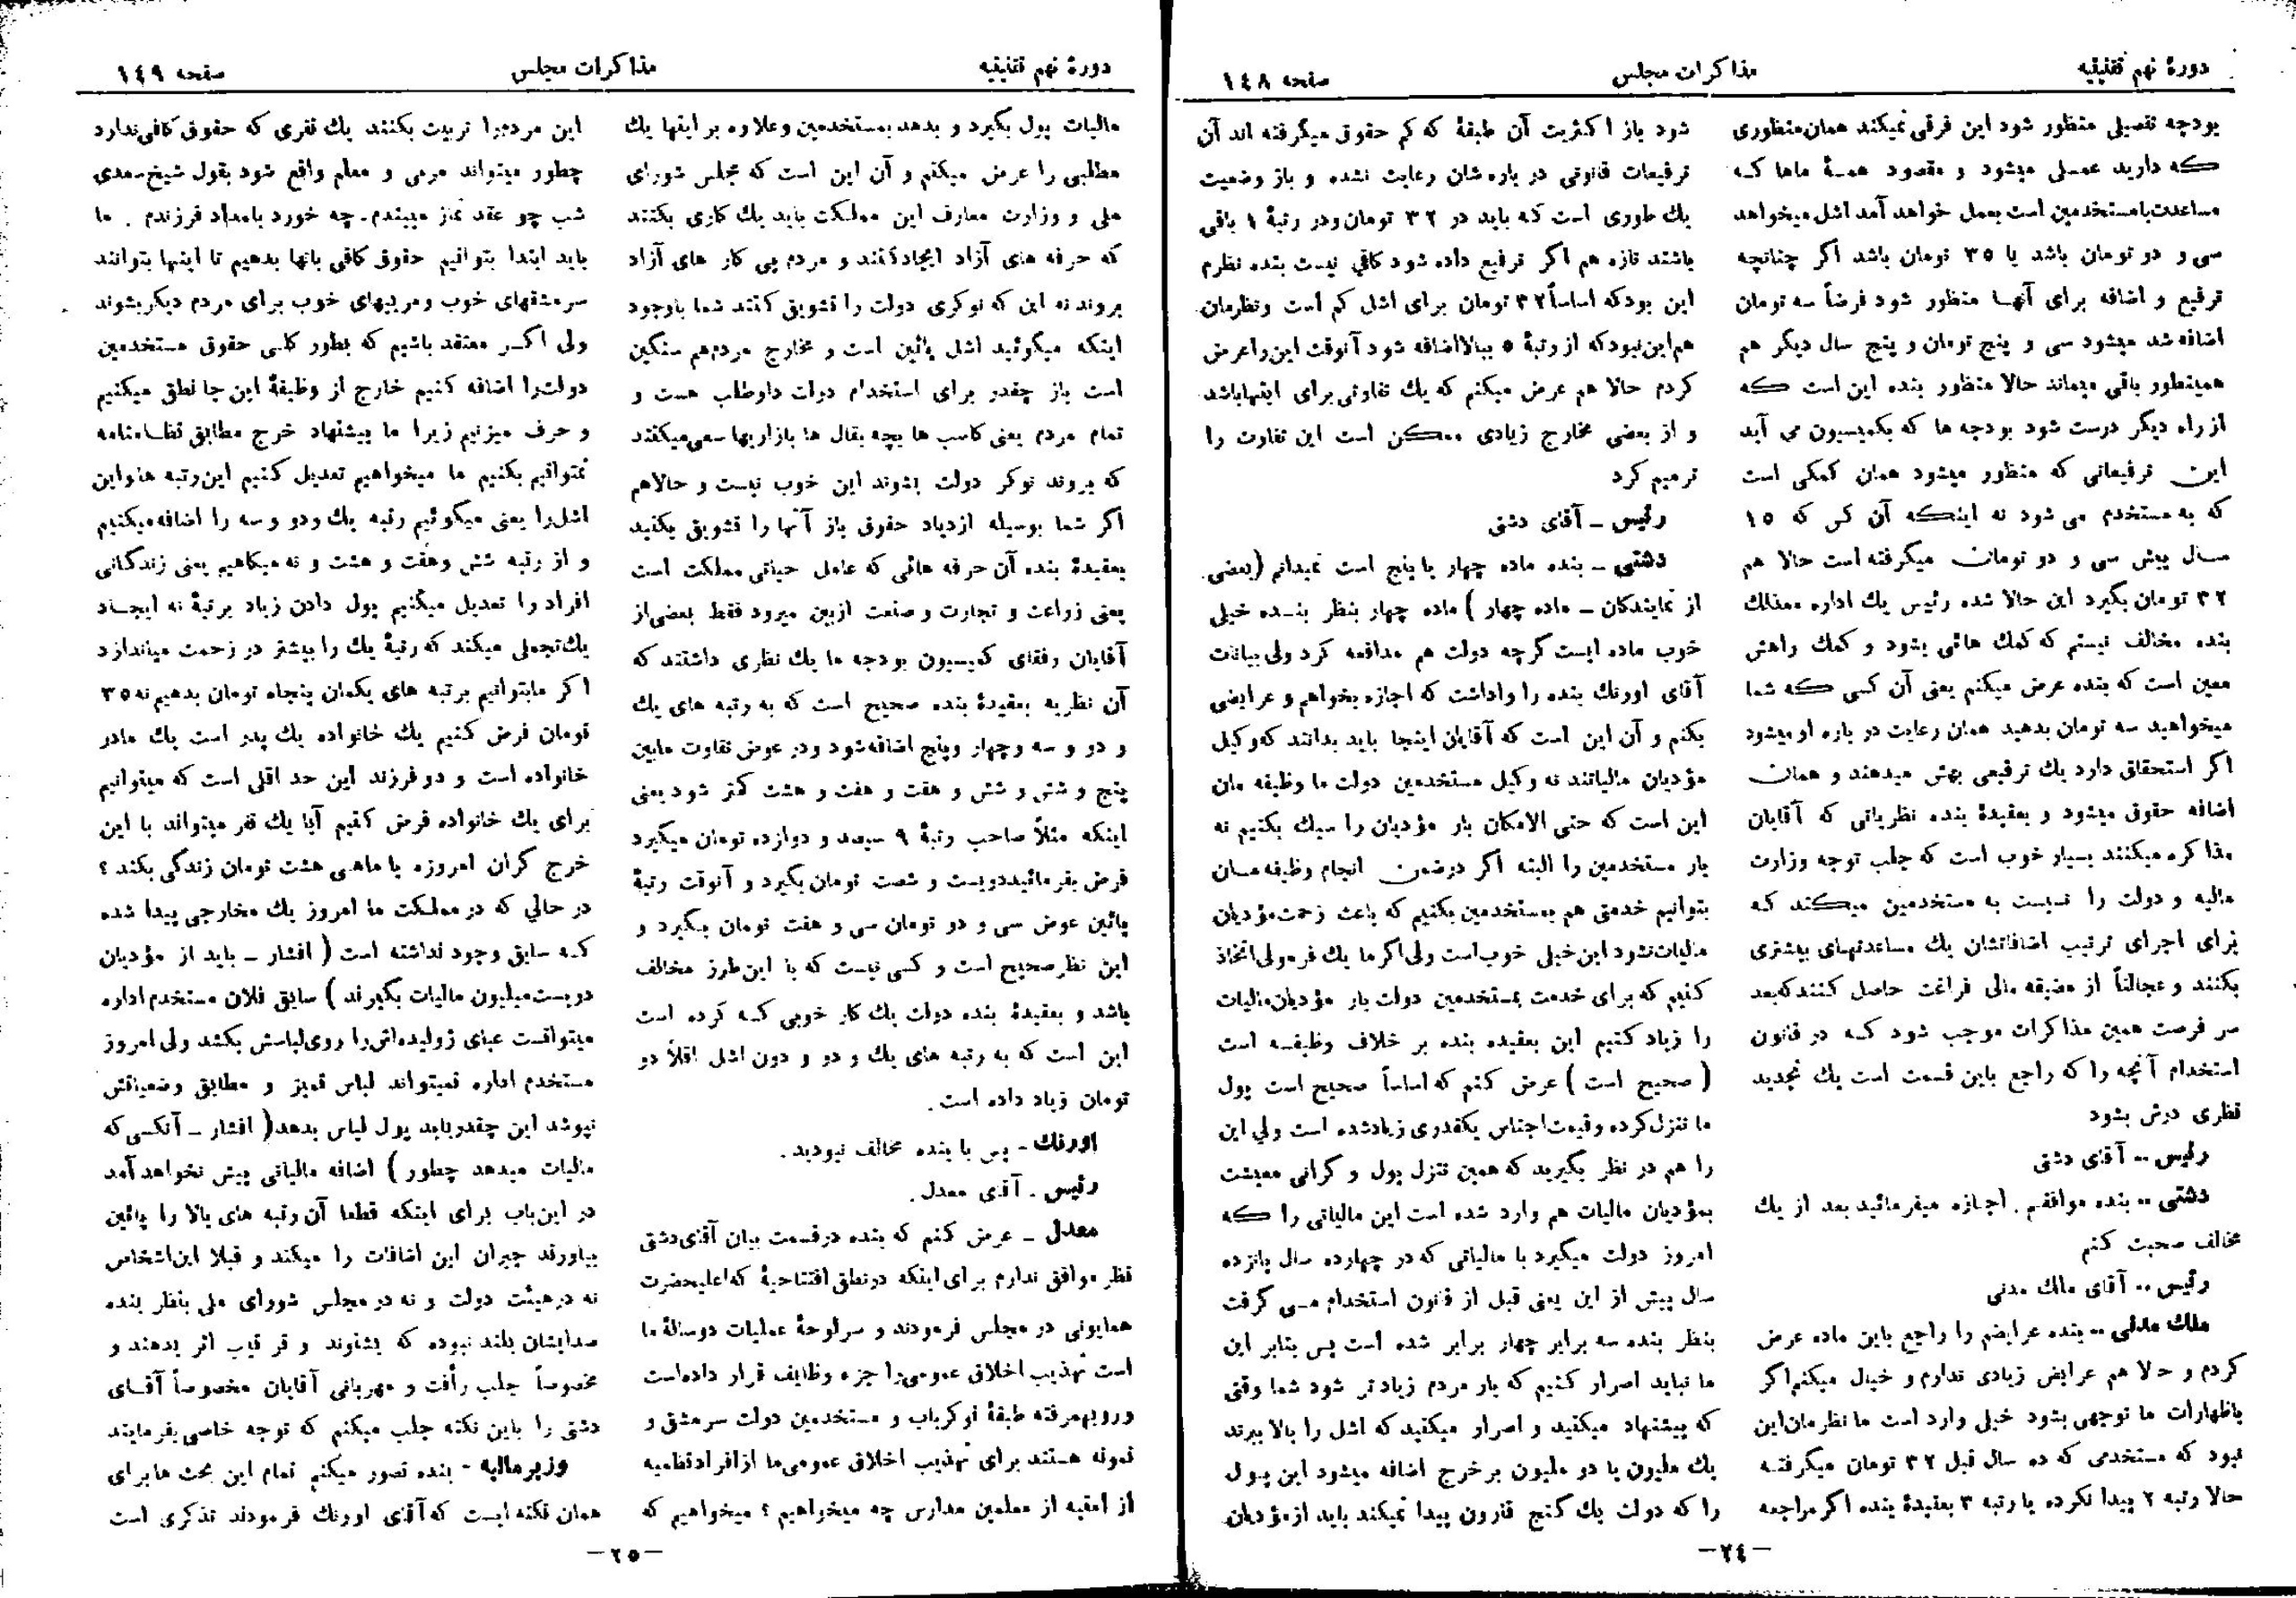 دورهٔ نهم تقنینیه
مذاکرات مجلس
صفحه ١٤٨
بودجه تفصیلی منظور شود این فرقی نمیکند همان منظوری
که دارید عملی میشود و مقصود همهٔ ماها که
مساعدت با مستخدمین است بعمل خواهد آمد اشل میخواهد
سی و دو تومان باشد یا ٣٥ تومان باشد اگر چنانچه
ترفیع و اضافه برای آنها منظور شود فرضاً سه تومان
اضافه شد میشود سی و پنج تومان و پنج سال دیگر هم
همینطور باقی میماند حالا منظور بنده این است که
از راه دیگر درست شود بودجه ها که بکمیسیون می آید
این ترفیعاتی که منظور میشود همان کمکی است
که به مستخدم می شود نه اینکه آن کس که ١٥
سال پیش سی و دو تومان میگرفته است حالا هم
٣٢ تومان بگیرد این حالا شده رئیس یك اداره معذلك
بنده مخالف نیستم که کمك هائی بشود و کمك راهش
معین است که بنده عرض میکنم یعنی آن کسی که شما
میخواهید سه تومان بدهید همان رعایت در باره او میشود
اگر استحقاق دارد یك ترفیعی بهش میدهند و همان
اضافه حقوق میشود و بعقیدهٔ بنده نظریاتی که آقایان
مذاکره میکنند بسیار خوب است که جلب توجه وزارت
مالیه و دولت را نسبت به مستخدمین میکند که
برای اجرای ترتیب اضافاتشان یك مساعدتهای بیشتری
بکنند و عجالتاً از مضیقه مالی فراغت حاصل کنند که بعد
سر فرصت همین مذاکرات موجب شود که در قانون
استخدام آنچه را که راجع باین قسمت است یك تجدید
نظری درش بشود
رئیس -- آقای دشتی
دشتی -- بنده موافقم . اجازه میفرمائید بعد از یك
مخالف صحبت کنم
رئیس -- آقای ملك مدنی
ملك مدنی -- بنده عرایضم را راجع باین ماده عرض
کردم و حالا هم عرایض زیادی ندارم و خیال میکنم اگر
باظهارات ما توجهی بشود خیلی وارد است ما نظرمان این
نبود که مستخدمی که ده سال قبل ٣٢ تومان میگرفته
حالا رتبه ٢ پیدا نکرده یا رتبه ٣ بعقیدهٔ بنده اگر مراجعه
شود باز اکثریت آن طبقهٔ که کم حقوق میگرفته اند آن
ترفیعات قانونی در باره شان رعایت نشده و باز وضعیت
یك طوری است که باید در ٣٢ تومان و در رتبهٔ ١ باقی
باشند تازه هم اگر ترفیع داده شود کافی نیست بنده نظرم
این بود که اساساً ٣٢ تومان برای اشل کم است و نظرمان
هم این نبود که از رتبهٔ ٥ ببالا اضافه شود آنوقت این را عرض
کردم حالا هم عرض میکنم که یك تفاوتی برای اینها باشد
و از بعضی مخارج زیادی ممکن است این تفاوت را
ترمیم کرد
رئیس - آقای دشتی
دشتی - بنده ماده چهار یا پنج است نمیدانم (بعضی
از نمایندگان - ماده چهار) ماده چهار بنظر بنده خیلی
خوب ماده ایست گرچه دولت هم مدافعه کرد ولی بیانات
آقای اورنك بنده را واداشت که اجازه بخواهم و عرایضی
بکنم و آن این است که آقایان اینجا باید بدانند که وکیل
مؤدیان مالیاتند نه وکیل مستخدمین دولت ما وظیفه مان
این است که حتی الامکان بار مؤدیان را سبك بکنیم نه
بار مستخدمین را البته اگر درضمن انجام وظیفه مان
بتوانیم خدمتی هم بمستخدمین بکنیم که باعث زحمت مؤدیان
مالیات نشود این خیلی خوب است ولی اگر ما یك فرمولی اتخاذ
کنیم که برای خدمت بمستخدمین دولت بار مؤدیان مالیات
را زیاد کنیم این بعقیده بنده بر خلاف وظیفه است
( صحیح است ) عرض کنم که اساساً صحیح است پول
ما تنزل کرده و قیمت اجناس یکقدری زیاد شده است ولی این
را هم در نظر بگیرید که همین تنزل پول و گرانی معیشت
بمؤدیان مالیات هم وارد شده است این مالیاتی را که
امروز دولت میگیرد با مالیاتی که در چهارده سال پانزده
سال پیش از این یعنی قبل از قانون استخدام می گرفت
بنظر بنده سه برابر چهار برابر شده است پس بنابر این
ما نباید اصرار کنیم که بار مردم زیادتر شود شما وقتی
که پیشنهاد میکنید و اصرار میکنید که اشل را بالا ببرند
یك ملیون یا دو ملیون بر خرج اضافه میشود این پول
را که دولت یك گنج قارون پیدا نمیکند باید از مؤدیان
-٢٤-
دورهٔ نهم تقنینیه
مذاکرات مجلس
صفحه ١٤٩
مالیات پول بگیرد و بدهد بمستخدمین و علاوه بر اینها یك
مطلبی را عرض میکنم و آن این است که مجلس شورای
ملی و وزارت معارف این مملکت باید یك کاری بکنند
که حرفه های آزاد ایجاد کنند و مردم پی کار های آزاد
بروند نه این که نوکری دولت را تشویق کنند شما باوجود
اینکه میگوئید اشل پائین است و مخارج مردم هم سنگین
است باز چقدر برای استخدام دولت داوطلب هست و
تمام مردم یعنی کاسب ها بچه بقال ها بازاریها سعی میکنند
که بروند نوکر دولت بشوند این خوب نیست و حالا هم
اگر شما بوسیله ازدیاد حقوق باز آنها را تشویق بکنید
بعقیدهٔ بنده آن حرفه هائی که عامل حیاتی مملکت است
یعنی زراعت و تجارت و صنعت ازبین میرود فقط بعضی از
آقایان رفقای کمیسیون بودجه ما یك نظری داشتند که
آن نظریه بعقیدهٔ بنده صحیح است که به رتبه های یك
و دو و سه و چهار و پنج اضافه شود ودر عوض تفاوت مابین
پنج و شش و شش و هفت و هفت و هشت کمتر شود یعنی
اینکه مثلاً صاحب رتبهٔ ٩ سیصد و دوازده تومان میگیرد
فرض بفرمائید دویست و شصت تومان بگیرد و آنوقت رتبهٔ
پائین عوض سی و دو تومان سی و هفت تومان بگیرد و
این نظر صحیح است و کسی نیست که با این طرز مخالف
باشد و بعقیدهٔ بنده دولت یك کار خوبی که کرده است
این است که به رتبه های یك و دو و دون اشل اقلاً دو
تومان زیاد داده است .
اورنك - پس با بنده مخالف نبودید .
رئیس . آقای معدل .
معدل - عرض کنم که بنده درقسمت بیان آقای دشتی
نظر موافق ندارم برای اینکه درنطق افتتاحیهٔ که اعلیحضرت
همایونی در مجلس فرمودند و سرلوحهٔ عملیات دوسالهٔ ما
است تهذیب اخلاق عمومی را جزء وظایف قرار داده است
ورویهمرفته طبقهٔ نوکرباب و مستخدمین دولت سرمشق و
نمونه هستند برای تهذیب اخلاق عمومی ما از افراد نظمیه
از امنیه از معلمین مدارس چه میخواهیم ؟ میخواهیم که
این مردم را تربیت بکنند یك نفری که حقوق کافی ندارد
چطور میتواند مربی و معلم واقع شود بقول شیخ سعدی
شب چو عقد نماز میبندم . چه خورد بامداد فرزندم . ما
باید ابتدا بتوانیم حقوق کافی بآنها بدهیم تا اینها بتوانند
سرمشقهای خوب و مربیهای خوب برای مردم دیگر بشوند
ولی اگر معتقد باشیم که بطور کلی حقوق مستخدمین
دولت را اضافه کنیم خارج از وظیفهٔ این جا نطق میکنیم
و حرف میزنیم زیرا ما پیشنهاد خرج مطابق نظامنامه
نمیتوانیم بکنیم ما میخواهیم تعدیل کنیم این رتبه ها و این
اشل را یعنی میگوئیم رتبه یك ودو و سه را اضافه میکنیم
و از رتبه شش وهفت و هشت و نه میکاهیم یعنی زندگانی
افراد را تعدیل میکنیم پول دادن زیاد برتبهٔ نه ایجاد
یك تجملی میکند که رتبهٔ یك را بیشتر در زحمت میاندازد
اگر ما بتوانیم برتبه های یکمان پنجاه تومان بدهیم نه ٣٥
تومان فرض کنیم یك خانواده یك پدر است یك مادر
خانواده است و دو فرزند این حد اقلی است که میتوانیم
برای یك خانواده فرض کنیم آیا یك نفر میتواند با این
خرج گران امروزه با ماهی هشت تومان زندگی بکند ؟
در حالی که در مملکت ما امروز یك مخارجی پیدا شده
که سابق وجود نداشته است ( افشار - باید از مؤدیان
دویست میلیون مالیات بگیرند ) سابق فلان مستخدم اداره
میتوانست عبای ژولیده اش را روی لباسش بکشد ولی امروز
مستخدم اداره نمیتواند لباس تمیز و مطابق وضعیاتش
نپوشد این چقدر باید پول لباس بدهد ( افشار - آنکسی که
مالیات میدهد چطور ) اضافه مالیاتی پیش نخواهد آمد
در این باب برای اینکه قطعا آن رتبه های بالا را پائین
بیاورند جبران این اضافات را میکند و قبلا این اشخاص
نه درهیئت دولت و نه در مجلس شورای ملی بنظر بنده
صدایشان بلند نبوده که بشنوند و تر تیب اثر بدهند و
مخصوصاً جلب رأفت و مهربانی آقایان مخصوصاً آقای
دشتی را باین نکته جلب میکنم که توجه خاصی بفرمایند
وزیر مالیه - بنده تصور میکنم تمام این بحث ها برای
همان نکته ایست که آقای اورنك فرمودند تذکری است
-٢٥-